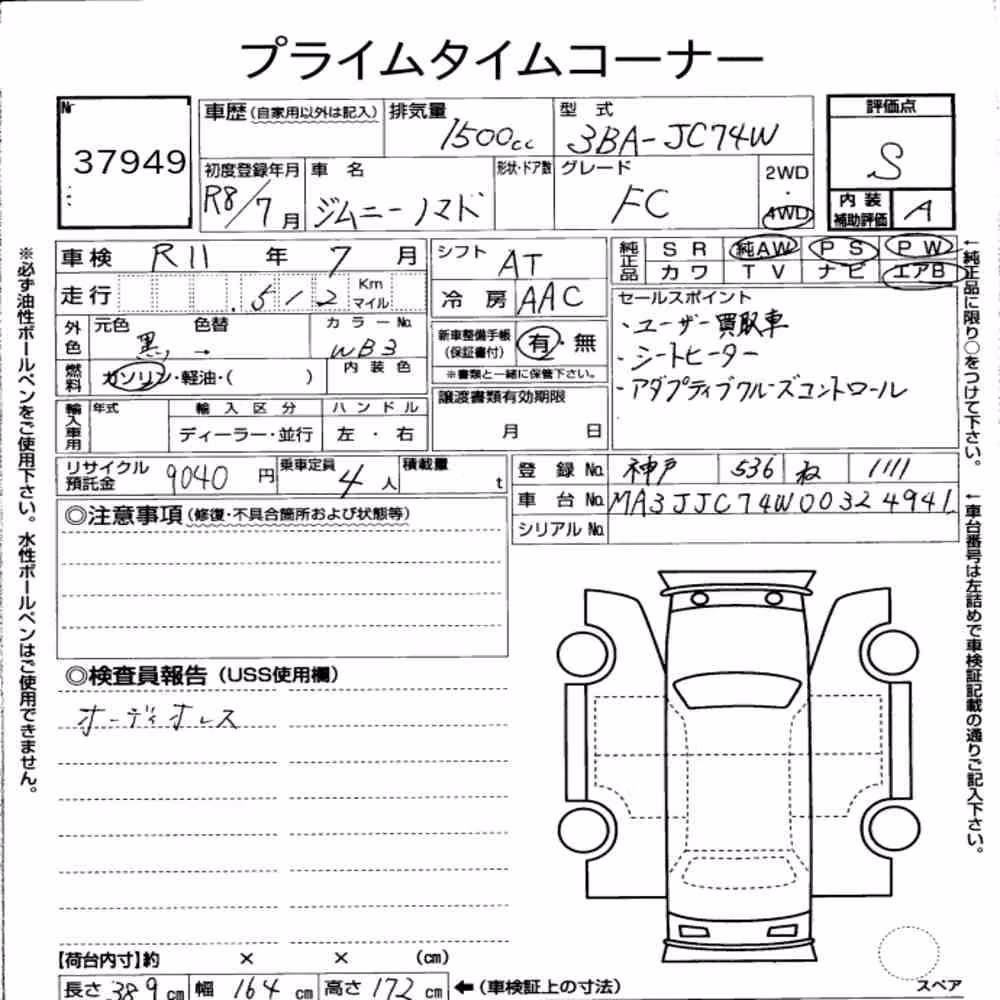 プライムタイムコーナー
Nr
37949
車歴(自家用以外は記入) 排気量 1500cc 型式 3BA-JC74W
初度登録年月 R8/7月 車名 ジムニーノマド 形状・ドア数 グレード FC 2WD・4WD
評価点 S
内装補助評価 A
車検 R11年7月
走行 .512 Km マイル
外色 元色 黒 色替 → カラーNo. WB3
燃料 ガソリン・軽油・( ) 内装色
輸入車用 年式 輸入区分 ディーラー・並行 ハンドル 左・右
シフト AT
冷房 AAC
新車整備手帳(保証書付) 有・無
※書類と一緒に保管下さい。
譲渡書類有効期限
月 日
純正品 SR 純AW PS PW
カワ TV ナビ エアB
セールスポイント
・ユーザー買取車
・シートヒーター
・アダプティブクルーズコントロール
リサイクル預託金 9040円 乗車定員 4人 積載量 t
登録No. 神戸 536 ね 1111
車台No. MA3JJC74W00324941
シリアルNo.
◎注意事項(修復・不具合箇所および状態等)
◎検査員報告(USS使用欄)
オーディオレス
【荷台内寸】約 × × (cm)
長さ 389cm 幅 164cm 高さ 172cm ←(車検証上の寸法)
スペア
※必ず油性ボールペンをご使用下さい。水性ボールペンはご使用できません。
←純正品に限り○をつけて下さい。
←車台番号は左詰めで車検証記載の通りご記入下さい。